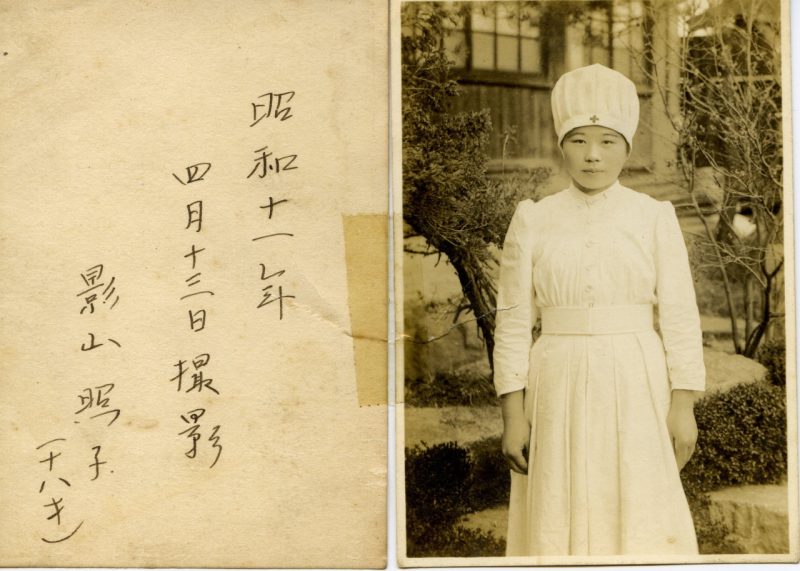 昭和十一年
四月十三日撮影
影山照子
(十八才)